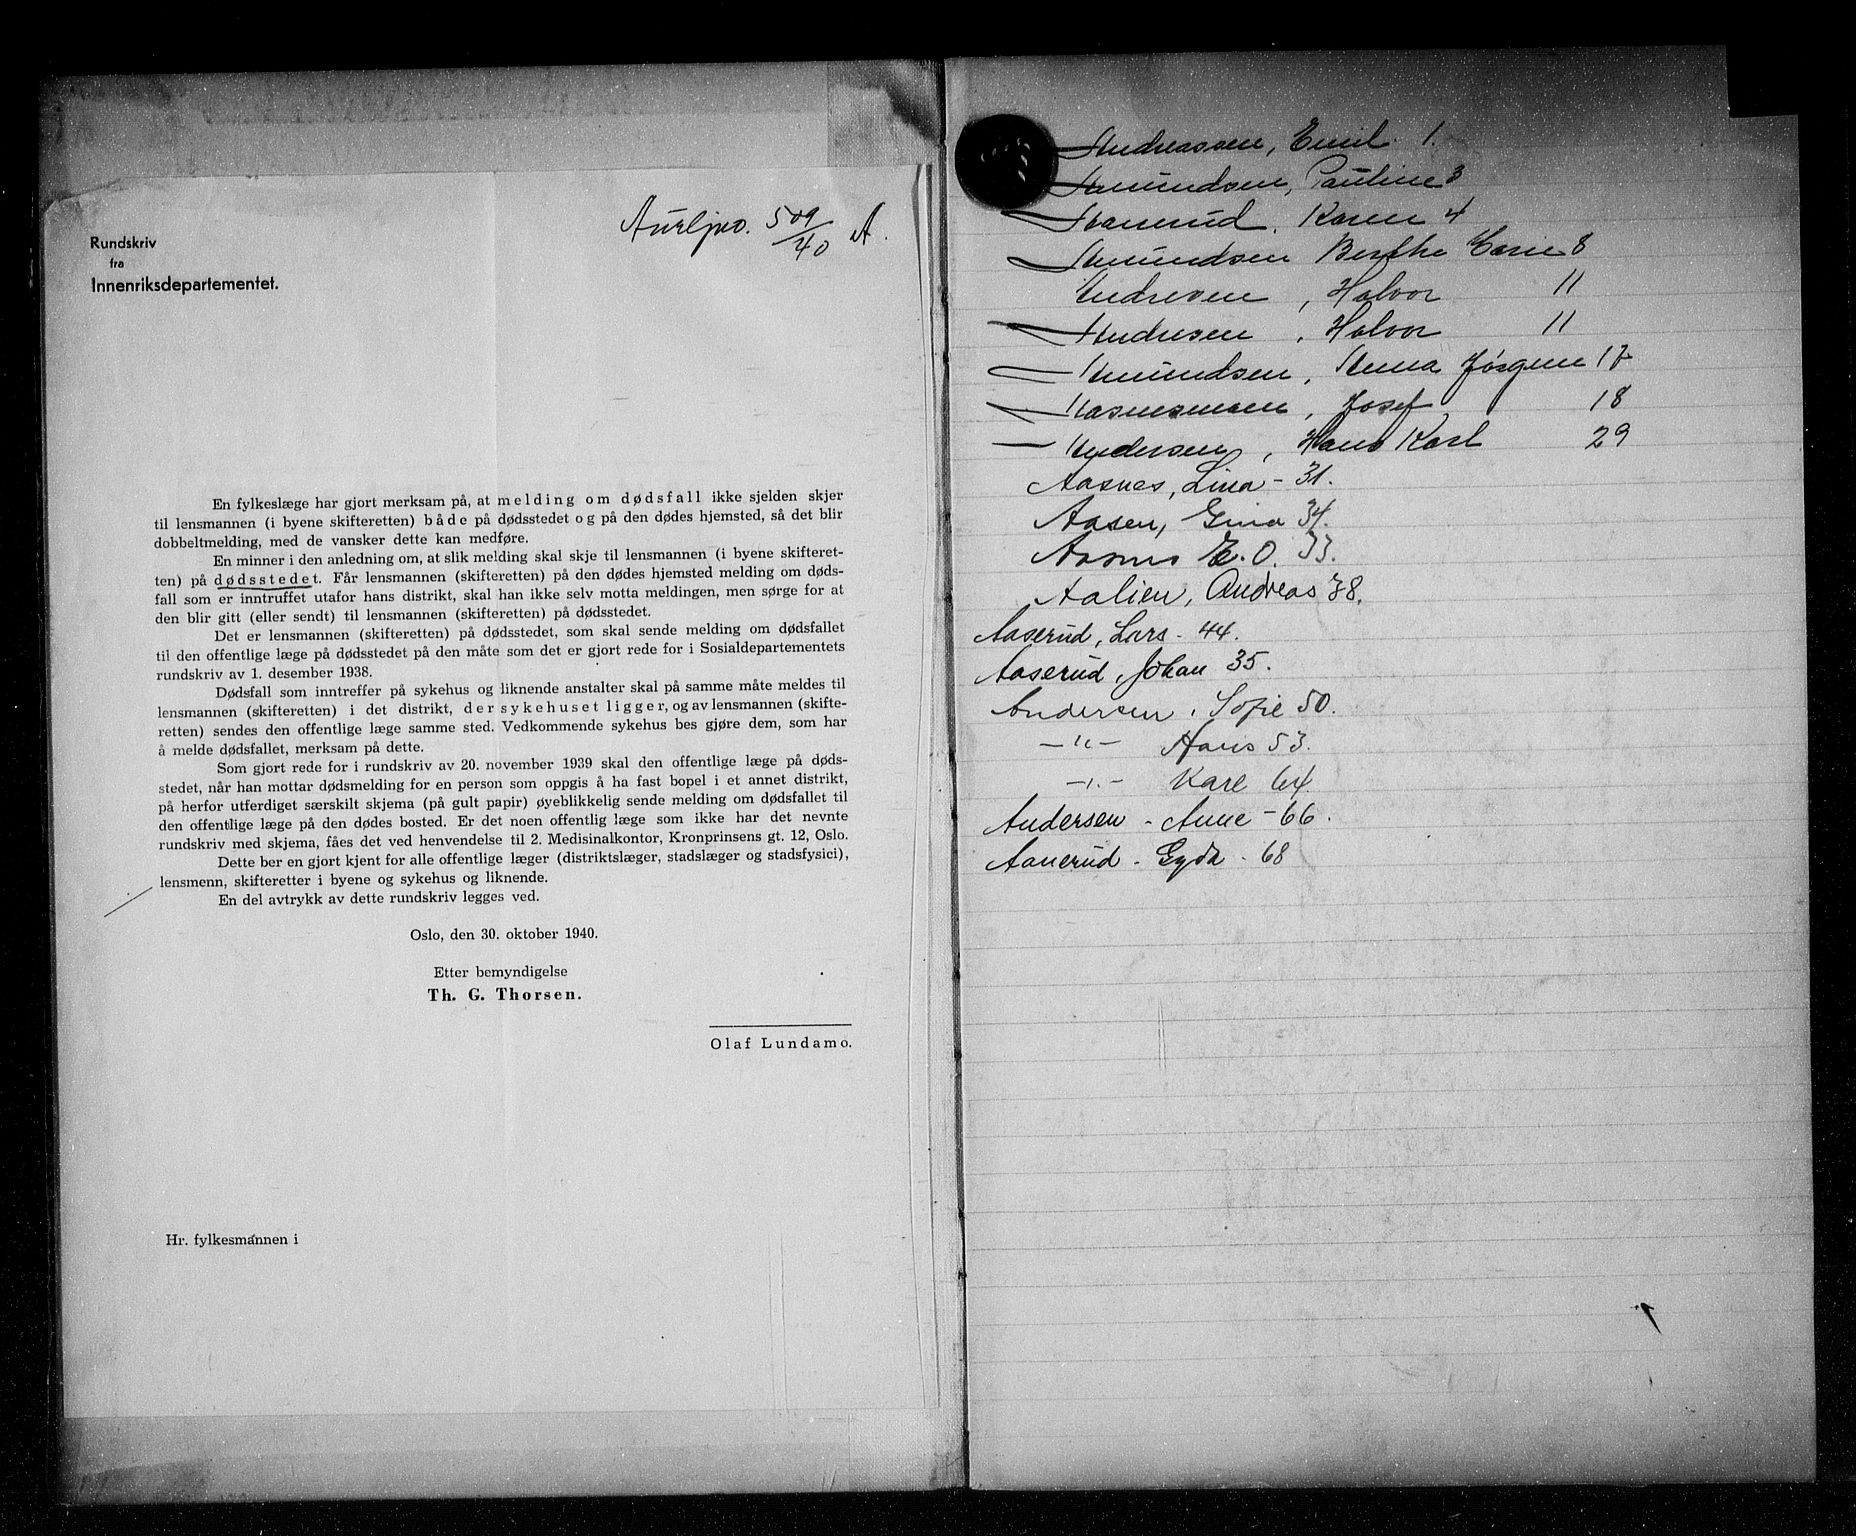 Aurljno. 509/40 A.
Rundskriv
fra
Innenriksdepartementet.
En fylkeslæge har gjort merksam på, at melding om dødsfall ikke sjelden skjer
til lensmannen (i byene skifteretten) både på dødsstedet og på den dødes hjemsted, så det blir
dobbeltmelding, med de vansker dette kan medføre.
En minner i den anledning om, at slik melding skal skje til lensmannen (i byene skifteret-
ten) på dødsstedet. Får lensmannen (skifteretten) på den dødes hjemsted melding om døds-
fall som er inntruffet utafor hans distrikt, skal han ikke selv motta meldingen, men sørge for at
den blir gitt (eller sendt) til lensmannen (skifteretten) på dødsstedet.
Det er lensmannen (skifteretten) på dødsstedet, som skal sende melding om dødsfallet
til den offentlige læge på dødsstedet på den måte som det er gjort rede for i Sosialdepartementets
rundskriv av 1. desember 1938.
Dødsfall som inntreffer på sykehus og liknende anstalter skal på samme måte meldes til
lensmannen (skifteretten) i det distrikt, der sykehuset ligger, og av lensmannen (skifte-
retten) sendes den offentlige læge samme sted. Vedkommende sykehus bes gjøre dem, som har
å melde dødsfallet, merksam på dette.
Som gjort rede for i rundskriv av 20. november 1939 skal den offentlige læge på døds-
stedet, når han mottar dødsmelding for en person som oppgis å ha fast bopel i et annet distrikt,
på herfor utferdiget særskilt skjema (på gult papir) øyeblikkelig sende melding om dødsfallet til
den offentlige læge på den dødes bosted. Er det noen offentlig læge som ikke har det nevnte
rundskriv med skjema, fåes det ved henvendelse til 2. Medisinalkontor, Kronprinsens gt. 12, Oslo.
Dette ber en gjort kjent for alle offentlige læger (distriktslæger, stadslæger og stadsfysici),
lensmenn, skifteretter i byene og sykehus og liknende.
En del avtrykk av dette rundskriv legges ved.
Oslo, den 30. oktober 1940.
Etter bemyndigelse
Th. G. Thorsen.
Olaf Lundamo.
Hr. fylkesmannen i
Andreassen, Emil. 1.
Amundsen, Pauline 3
Karen 4
Amundsen Berthe Marie 8
Andresen, Halvor 11
Andresen, Halvor 11
Amundsen, Anna Jørgine 17
Josef 18
Andersen, Hans Karl 29
Aasnes, Lina - 31.
Aasen, Gina 34.
Aasnes E. O. 33.
Aalien, Andreas 38.
Aaserud, Lars - 44.
Aaserud, Johan 35.
Andersen, Sofie 50.
-"- Hans 53.
-"- Kare 64.
Andersen - Anne - 66.
Aanerud - Gyda - 68